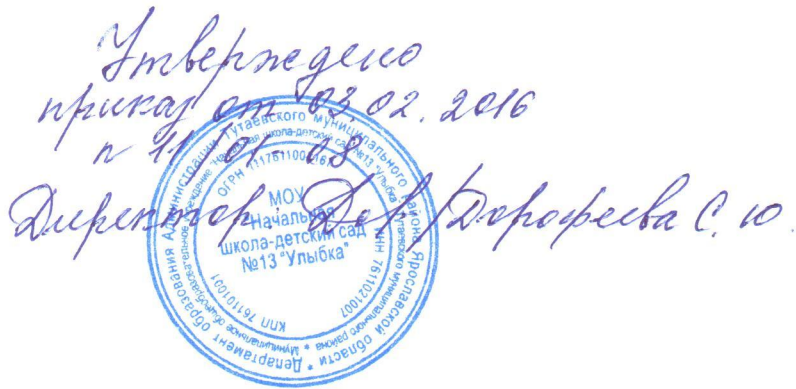 Утверждено
приказ от 03.02.2016
n 11/01-08
Директор: Дор/Дорофеева С. Ю.
* Департамент образования Администрации Тутаевского муниципального района Ярославской области
Муниципальное общеобразовательное учреждение "Начальная школа-детский сад №13 "Улыбка" Тутаевского муниципального района *
КПП 761101001
ИНН 7611021007
МОУ
"Начальная
школа-детский сад
№13 "Улыбка"